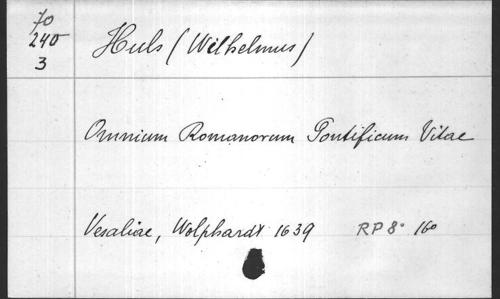 70
240
3
Huls (Wilhelmus)
Omnium Romanorum Pontificum Vitae
Vesaliae, Wolphardt 1639 RP 8° 160